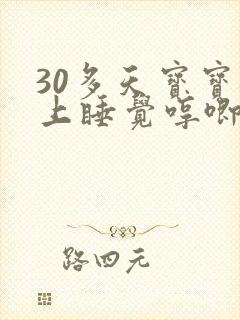 30多天寶寶
上睡覺哼唧
路四元